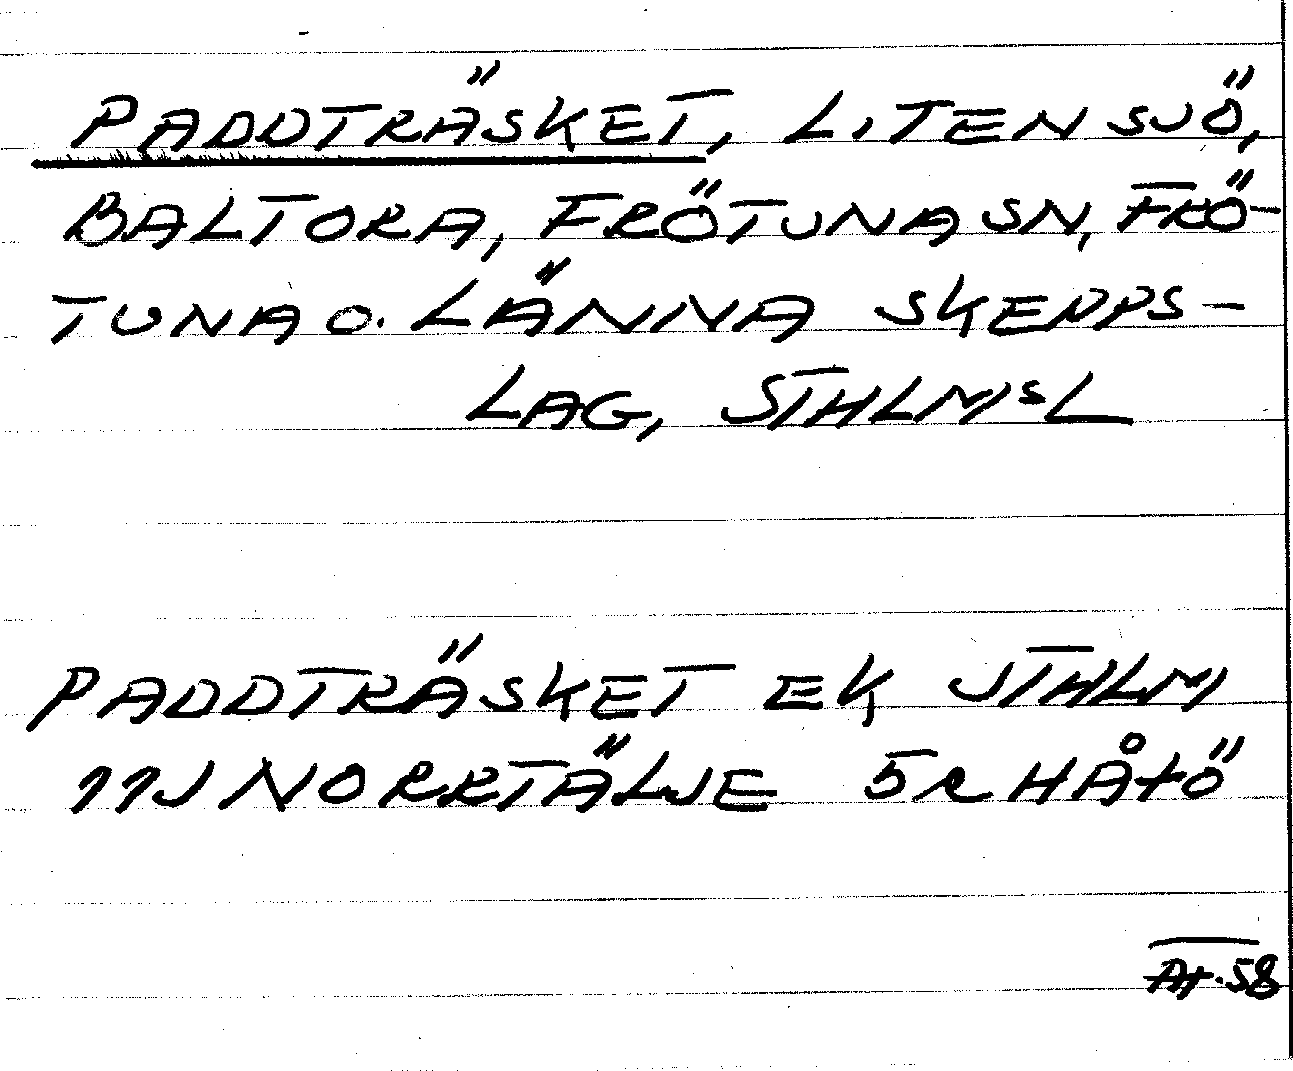 PADDTRÄSKET, LITEN SJÖ,
BALTORA, FRÖTUNA SN, FRÖ-
TUNA O. LÄNNA SKEPPS-
LAG, STHLMSL
PADDTRÄSKET EK STHLM
11J NORRTÄLJE 5R HÅTÖ
AT. 58